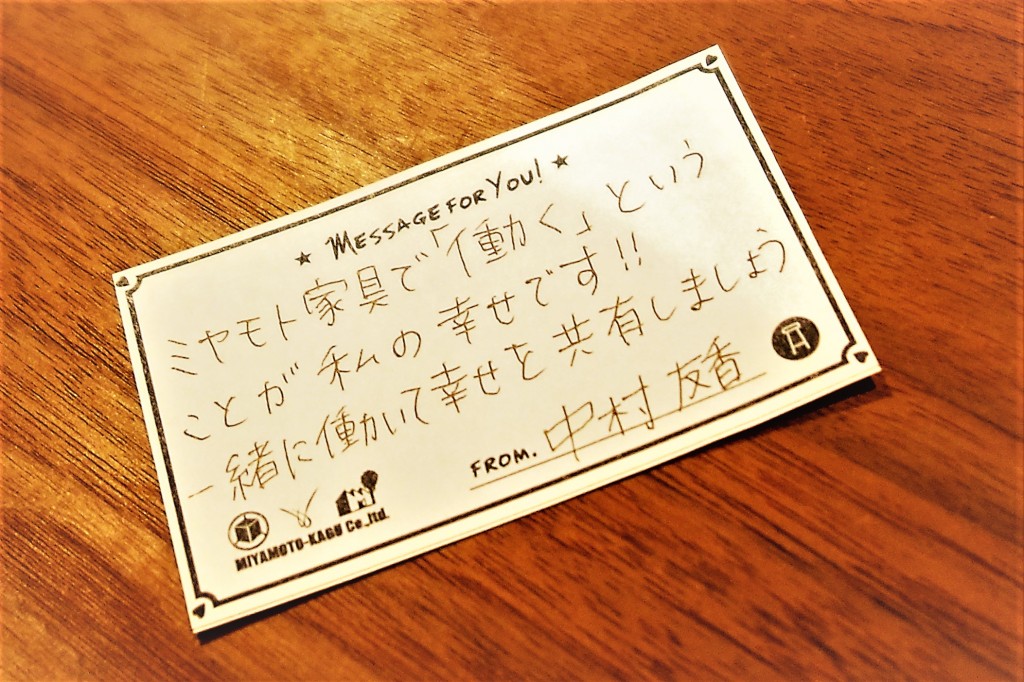 ★ MESSAGE FOR YOU! ★
ミヤモト家具で「働く」という
ことが私の幸せです!!
一緒に働いて幸せを共有しましょう
FROM. 中村友香
MIYAMOTO-KAGU Co.,ltd.